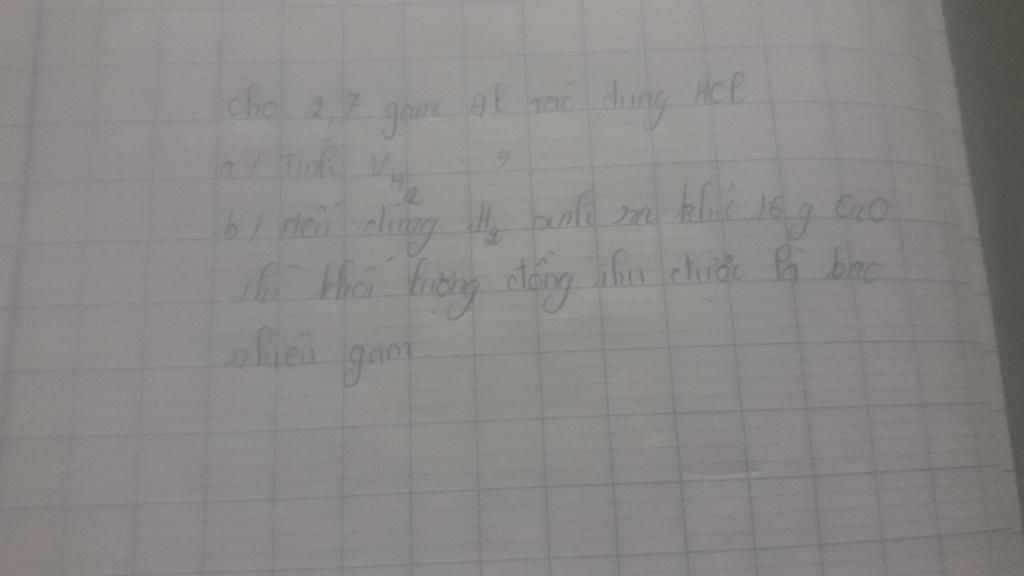 Cho 2,7 gam Al tác dụng HCl
a/ Tính V H2 = ?
b/ Nếu dùng H2 khử 16 g CuO
thì khối lượng đồng thu được là bao
nhiêu gam